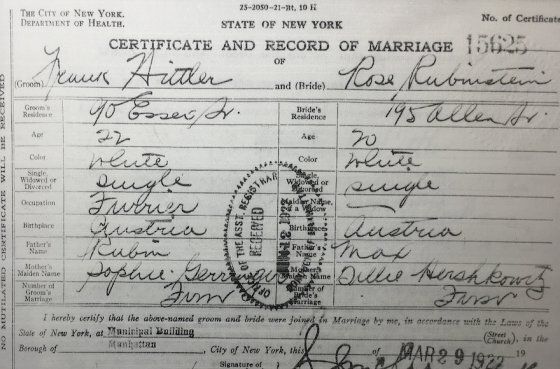 25-2050-21-Bt, 10 H
THE CITY OF NEW YORK.
DEPARTMENT OF HEALTH.
STATE OF NEW YORK
No. of Certificate
CERTIFICATE AND RECORD OF MARRIAGE 15625
OF
(Groom) Frank Hittler and (Bride) Rose Rubinstein
Groom's Residence 90 Essex St. Bride's Residence 195 Allen St.
Age 22 Age 20
Color White Color White
Single, Widowed or Divorced single Single, Widowed or Divorced single
Occupation Furrier Maiden Name, if a Widow
Birthplace Austria Birthplace Austria
Father's Name Rubin Father's Name Max
Mother's Maiden Name Sophie Mother's Maiden Name Hershkowitz
Number of Groom's Marriage Number of Bride's Marriage
OFFICE OF THE ASST. REGISTRAR
RECEIVED
I hereby certify that the above-named groom and bride were joined in Marriage by me, in accordance with the Laws of the
State of New York, at Municipal Building (Street Church), in the
Borough of Manhattan, City of New York, this MAR 29 1922 19
Signature of
NO MUTILATED CERTIFICATE WILL BE RECEIVED